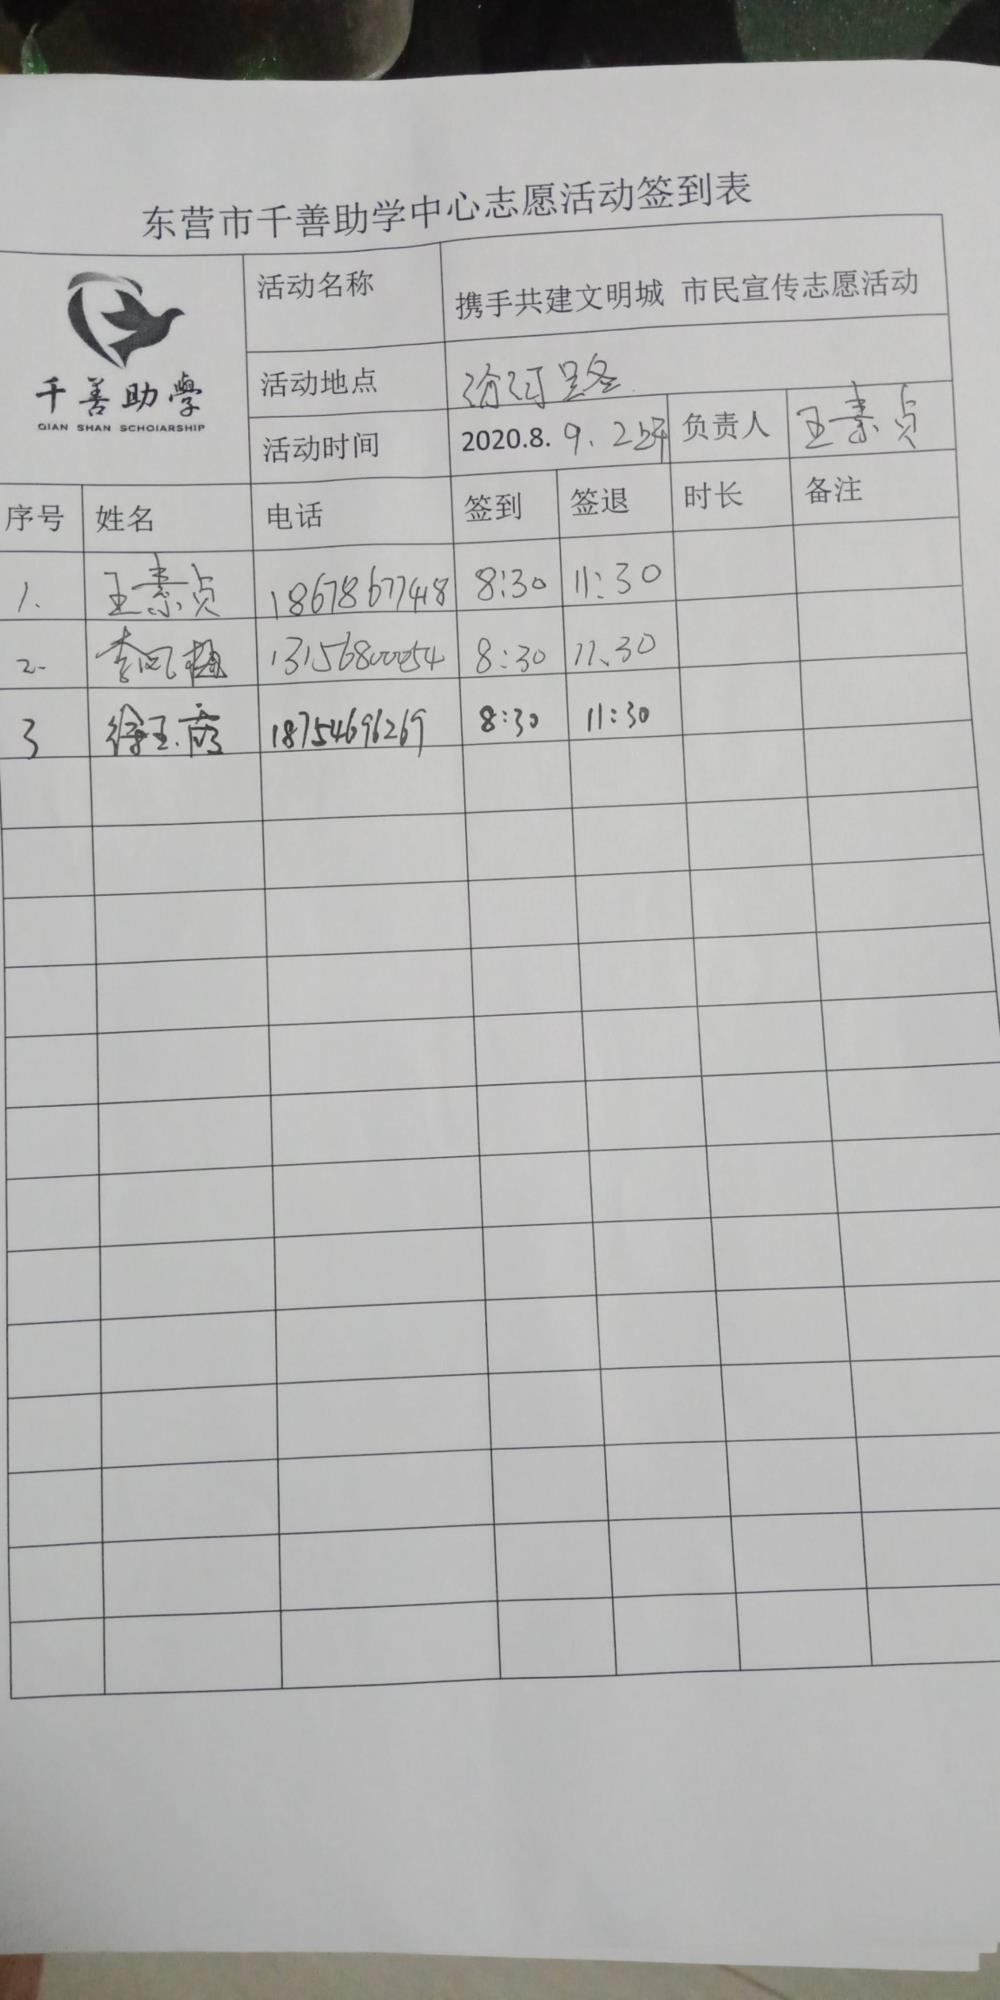 东营市千善助学中心志愿活动签到表
千善助學
QIAN SHAN SCHOIARSHIP
活动名称 携手共建文明城 市民宣传志愿活动
活动地点 路
活动时间 2020.8. 9. 负责人 王素贞
序号 姓名 电话 签到 签退 时长 备注
1. 王素贞 18678677418 8:30 11:30
2. 李凤梅 8:30 11.30
3 徐玉霞 18754696269 8:30 11:30